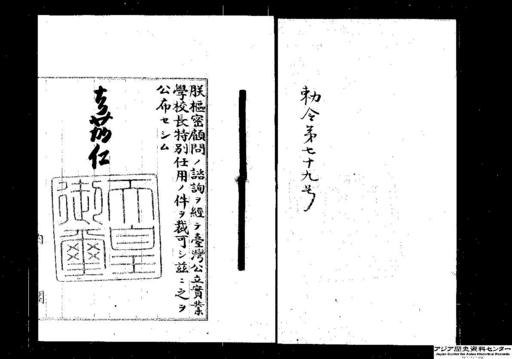 勅令第七十九号
朕樞密顧問ノ諮詢ヲ經テ臺灣公立實業
學校長特別任用ノ件ヲ裁可シ茲ニ之ヲ
公布セシム
嘉仁
天皇
御璽
内
閣
アジア歴史資料センター
Japan Center for Asian Historical Records